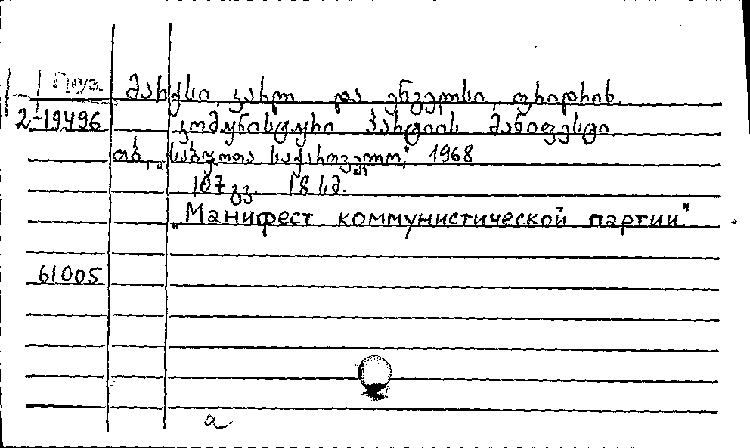 მარქსი, კარლ და ენგელსი, ფრიდრიხ.
2-19496 კომუნისტური პარტიის მანიფესტი.
თბ., „საბჭოთა საქართველო", 1968
107 გვ. 18 სმ.
„Манифест коммунистической партии"
61005
a